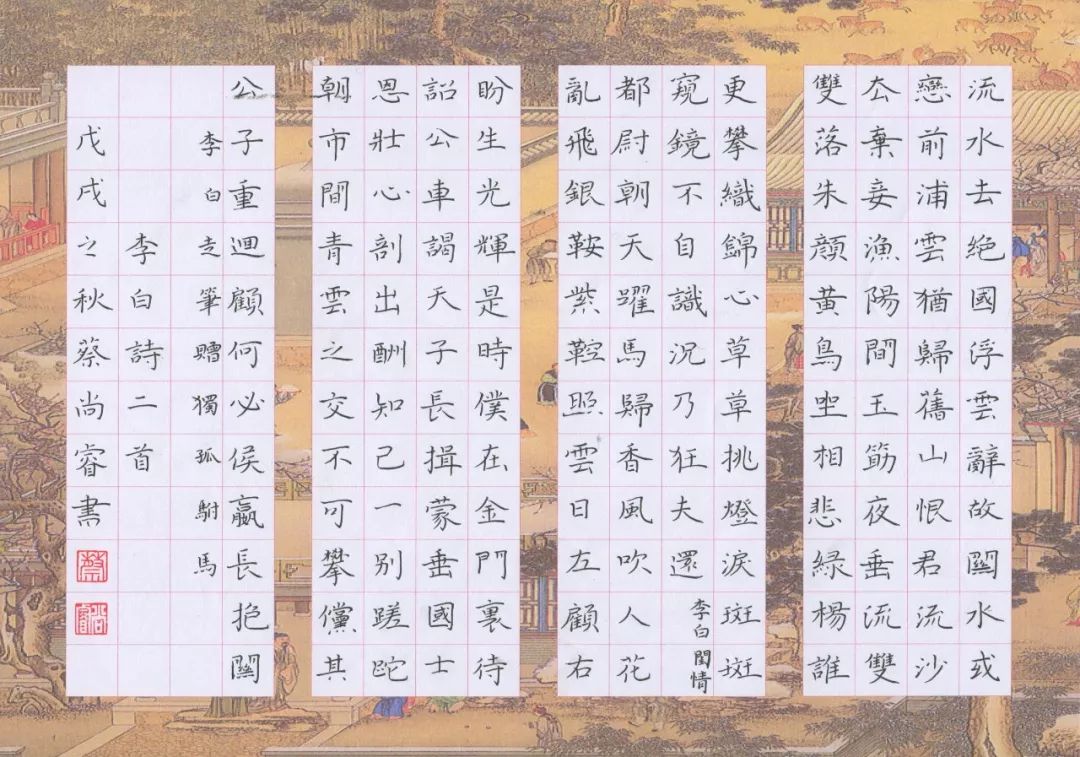 流水去絶國浮雲辭故關水或
戀前浦雲猶歸舊山恨君流沙
厺棄妾漁陽間玉筯夜垂流雙
雙落朱顔黄鳥坐相悲緑楊誰
更攀織錦心草草挑燈淚斑斑
窺鏡不自識況乃狂夫還
李白閨情
都尉朝天躍馬歸香風吹人花
亂飛銀鞍紫鞚照雲日左顧右
盼生光輝是時僕在金門裏待
詔公車謁天子長揖蒙垂國士
恩壯心剖出酬知己一别蹉跎
朝市間青雲之交不可攀儻其
公子重迴顧何必侯嬴長抱關
李白走筆贈獨孤駙馬
李白詩二首
戊戌之秋蔡尚睿書
蔡
尚睿